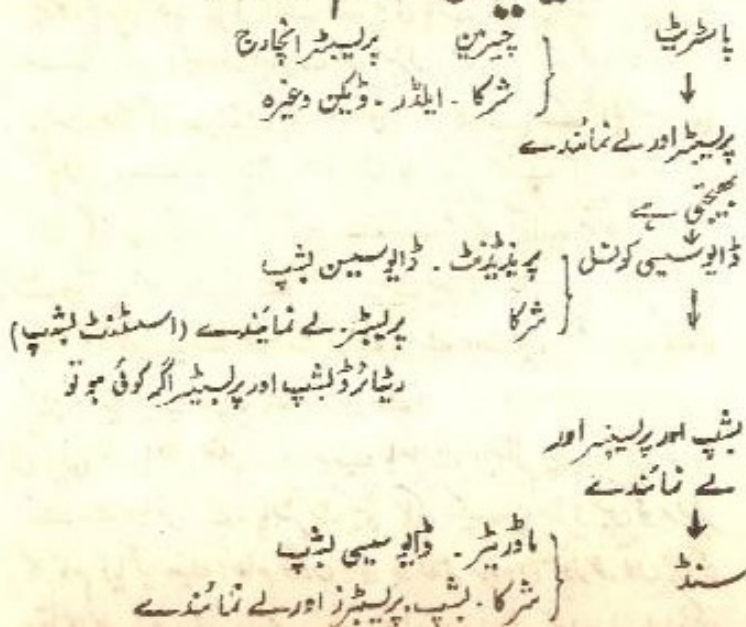 پاسٹریٹ { چیرمین پریسبٹر انچارج
شرکا - ایلڈر - ڈیکن وغیرہ
پریسبٹر اور لے نمائندے
بھیجتی ہے
ڈایوسیسی کونسل { پریذیڈنٹ - ڈایوسیسن بشپ
شرکا پریسبٹر - لے نمائیندے (اسسٹنٹ بشپ)
ریٹائرڈ بشپ اور پریسبٹر اگر کوئی ہو تو
بشپ اور پریسبٹر اور
لے نمائندے
سنڈ { ماڈریٹر - ڈایوسیسی بشپ
شرکا - بشپ، پریسبٹرز اور لے نمائندے